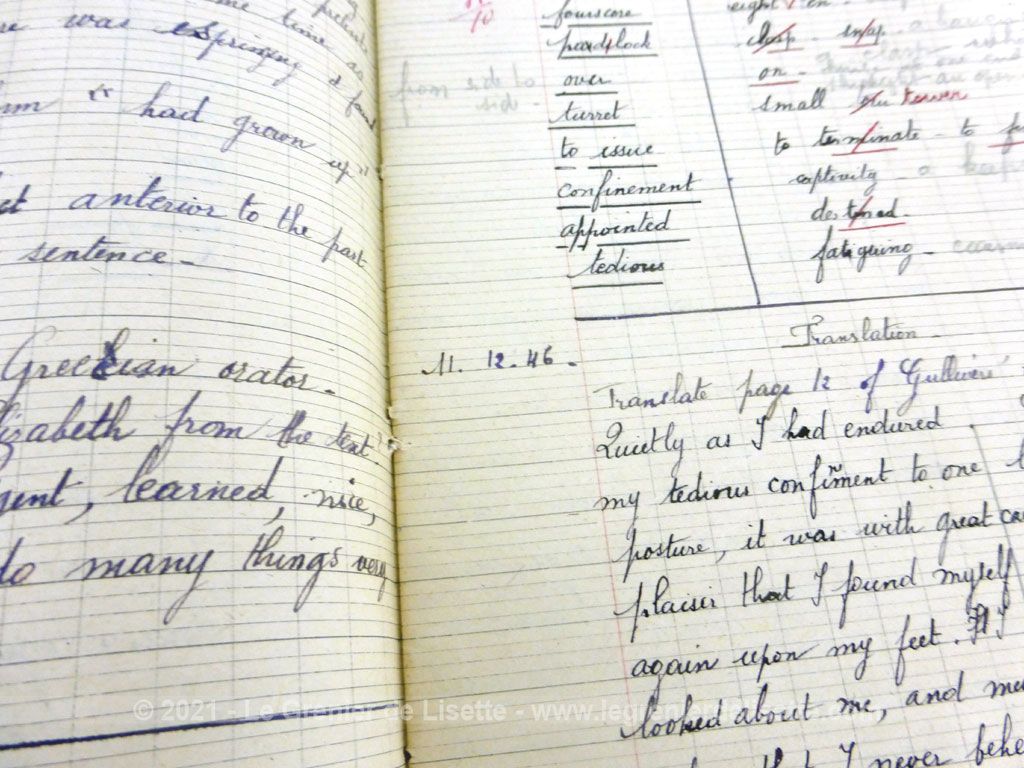 was springing &
had grown up"
anterior to the past
sentence.
Greecian orator.
from the text.
learned, nice,
do many things very
10
from side to
side -
fourscore
padlock
over
turret
to issue
confinement
appointed
tedious
clasp - snap.
on -
small tower
to terminate - to
captivity - a
destined.
fatiguing -
Translation
11. 12. 46.
Translate page 12 of Gullivers'
Quietly as I had endured
my tedious confiment to one
posture, it was with great
plaisir that I found myself
again upon my feet. I
looked about me, and
that I never
© 2021 - Le Grenier de Lisette - www.legrenierdelisette.com